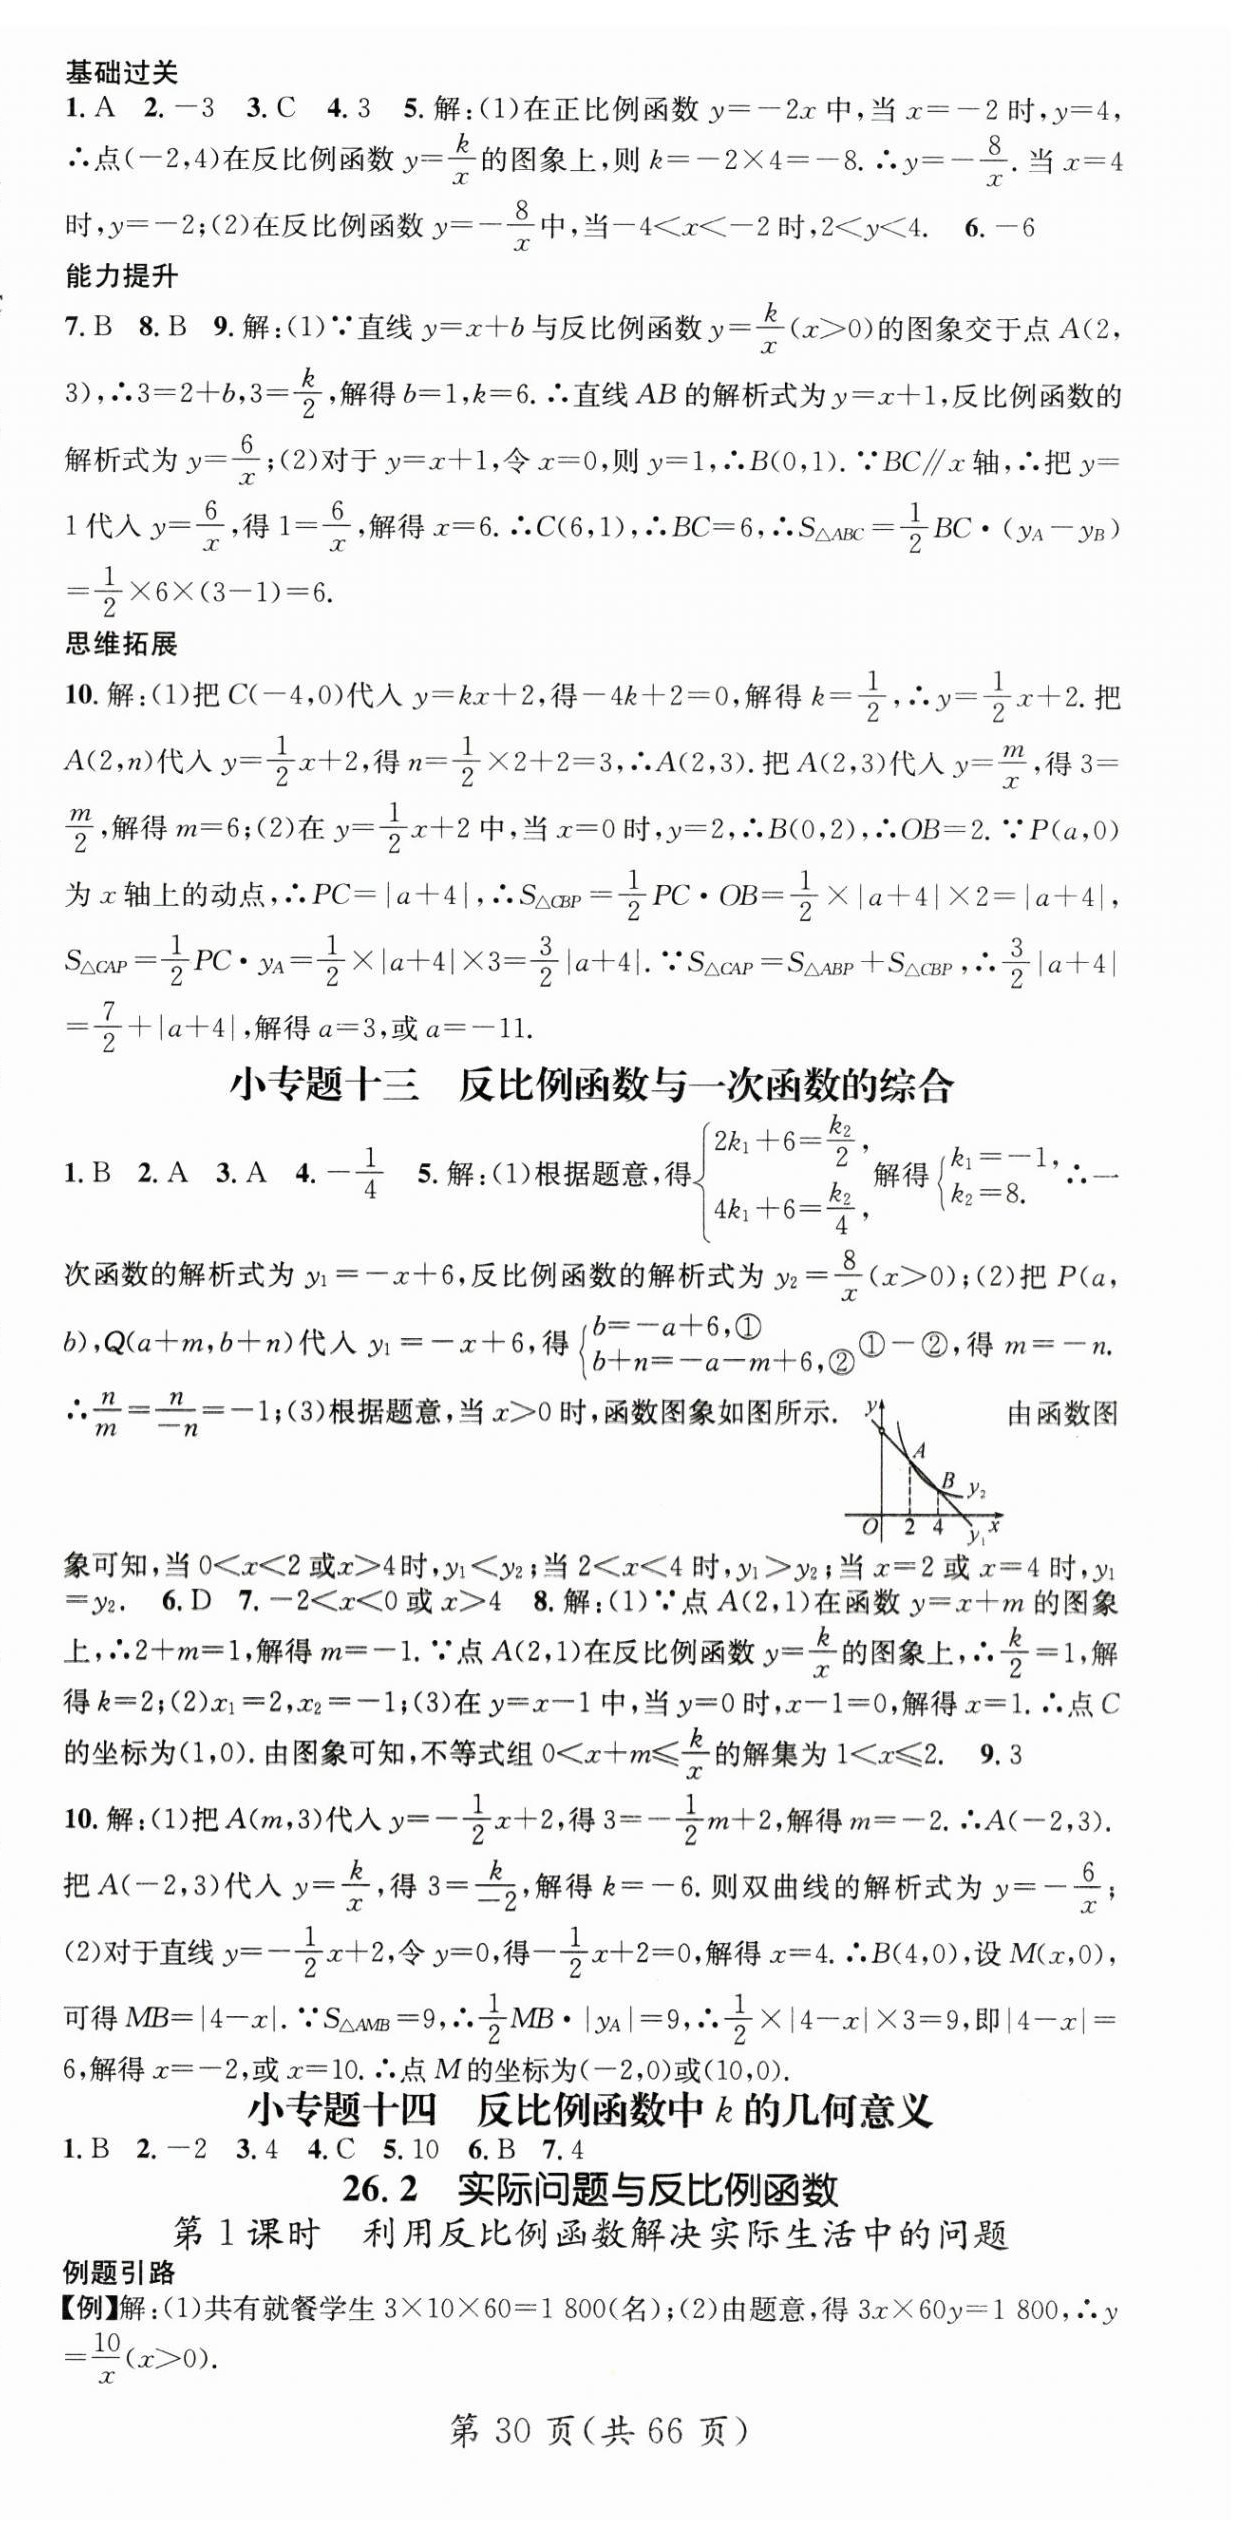 基础过关
1. A 2. －3 3. C 4. 3 5. 解:(1)在正比例函数 y=－2x 中,当 x=－2 时,y=4,
∴点(－2,4)在反比例函数 y=k/x的图象上,则 k=－2×4=－8. ∴y=－8/x. 当 x=4
时,y=－2;(2)在反比例函数 y=－8/x中,当－4<x<－2 时,2<y<4. 6. －6
能力提升
7. B 8. B 9. 解:(1)∵直线 y=x+b 与反比例函数 y=k/x(x>0)的图象交于点 A(2,
3),∴3=2+b,3=k/2,解得 b=1,k=6. ∴直线 AB 的解析式为 y=x+1,反比例函数的
解析式为 y=6/x;(2)对于 y=x+1,令 x=0,则 y=1,∴B(0,1). ∵BC∥x 轴,∴把 y=
1 代入 y=6/x,得 1=6/x,解得 x=6. ∴C(6,1),∴BC=6,∴S△ABC=1/2BC·(yA－yB)
=1/2×6×(3－1)=6.
思维拓展
10. 解:(1)把 C(－4,0)代入 y=kx+2,得－4k+2=0,解得 k=1/2,∴y=1/2x+2. 把
A(2,n)代入 y=1/2x+2,得 n=1/2×2+2=3,∴A(2,3). 把 A(2,3)代入 y=m/x,得 3=
m/2,解得 m=6;(2)在 y=1/2x+2 中,当 x=0 时,y=2,∴B(0,2),∴OB=2. ∵P(a,0)
为 x 轴上的动点,∴PC=|a+4|,∴S△CBP=1/2PC·OB=1/2×|a+4|×2=|a+4|,
S△CAP=1/2PC·yA=1/2×|a+4|×3=3/2|a+4|. ∵S△CAP=S△ABP+S△CBP,∴3/2|a+4|
=7/2+|a+4|,解得 a=3,或 a=－11.
小专题十三 反比例函数与一次函数的综合
1. B 2. A 3. A 4. －1/4 5. 解:(1)根据题意,得{2k₁+6=k₂/2, 4k₁+6=k₂/4, 解得{k₁=－1, k₂=8. ∴一
次函数的解析式为 y₁=－x+6,反比例函数的解析式为 y₂=8/x(x>0);(2)把 P(a,
b),Q(a+m,b+n)代入 y₁=－x+6,得{b=－a+6,① b+n=－a－m+6,② ①－②,得 m=－n.
∴n/m=n/－n=－1;(3)根据题意,当 x>0 时,函数图象如图所示. 由函数图
y
A
B y₂
O 2 4 y₁ x
象可知,当 0<x<2 或x>4时,y₁<y₂;当 2<x<4 时,y₁>y₂;当 x=2 或 x=4 时,y₁
=y₂. 6. D 7. －2<x<0 或 x>4 8. 解:(1)∵点 A(2,1)在函数 y=x+m 的图象
上,∴2+m=1,解得 m=－1. ∵点 A(2,1)在反比例函数 y=k/x的图象上,∴k/2=1,解
得 k=2;(2)x₁=2,x₂=－1;(3)在 y=x－1 中,当 y=0 时,x－1=0,解得 x=1. ∴点 C
的坐标为(1,0). 由图象可知,不等式组 0<x+m≤k/x的解集为 1<x≤2. 9. 3
10. 解:(1)把 A(m,3)代入 y=－1/2x+2,得 3=－1/2m+2,解得 m=－2. ∴A(－2,3).
把 A(－2,3)代入 y=k/x,得 3=k/－2,解得 k=－6. 则双曲线的解析式为 y=－6/x;
(2)对于直线 y=－1/2x+2,令 y=0,得－1/2x+2=0,解得 x=4. ∴B(4,0),设 M(x,0),
可得 MB=|4－x|. ∵S△AMB=9,∴1/2MB·|yA|=9,∴1/2×|4－x|×3=9,即|4－x|=
6,解得 x=－2,或 x=10. ∴点 M 的坐标为(－2,0)或(10,0).
小专题十四 反比例函数中 k 的几何意义
1. B 2. －2 3. 4 4. C 5. 10 6. B 7. 4
26. 2 实际问题与反比例函数
第 1 课时 利用反比例函数解决实际生活中的问题
例题引路
【例】解:(1)共有就餐学生 3×10×60=1 800(名);(2)由题意,得 3x×60y=1 800,∴y
=10/x(x>0).
第 30 页(共 66 页)